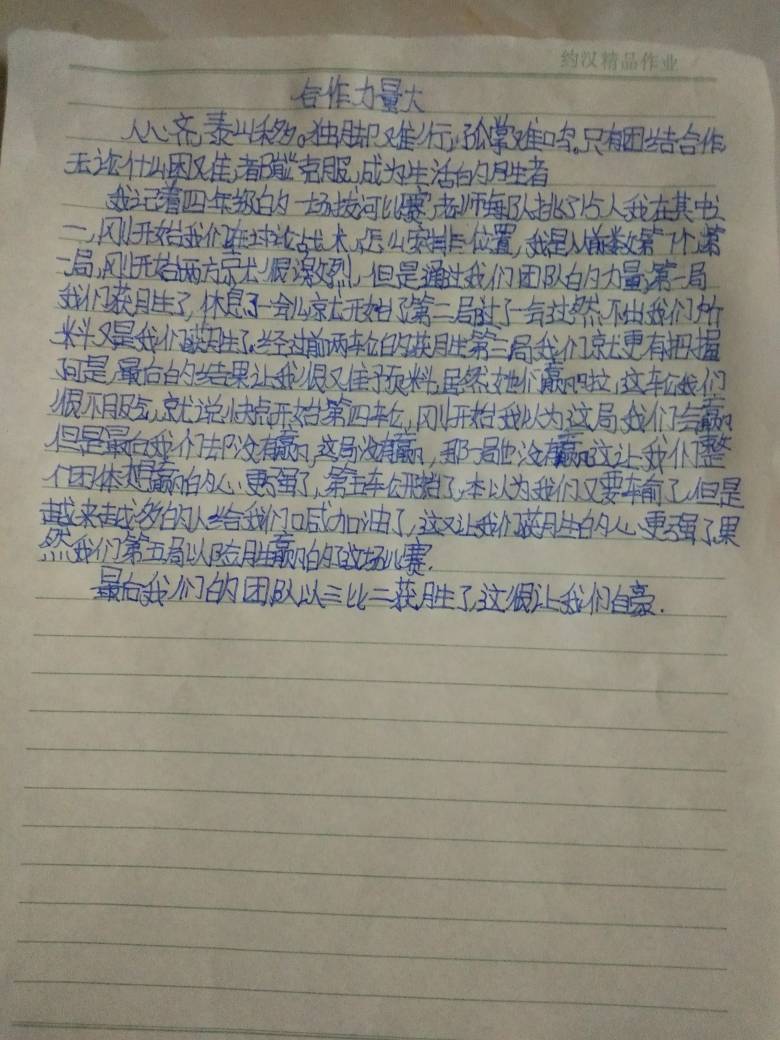 约汉精品作业
合作力量大
人心齐,泰山移。独脚难行,孤掌难鸣。只有团结合作
无论什么困难,都能克服,成为生活的胜者
我记着四年级的一场拔河比赛,老师每队挑了15人我在其中之
一,刚开始我们在讨论战术,怎么安排位置,我是从前数第7个,第
一局,刚开始两方就很激烈,但是通过我们团队的力量,第一局
我们获胜了,休息了一会儿就开始了第二局,过了一会过然不出我们所
料又是我们获胜了,经过前两轮的获胜第三局我们就更有把握
可是,最后的结果让我很难予料,居然她们赢啦,这轮我们
很不服气,就说快点开始第四轮,刚开始我以为这局我们会赢
但是最后我们却没有赢,这局没有赢,那一局也没有赢这让我们整
个团体想赢的心更强了,第五轮开始了,本以为我们又要输了,但是
越来越多的人给我们喊加油了,这又让我们获胜的心更强了果
然我们第五局以险胜赢的了这场比赛.
最后我们的团队以三比二获胜了,这很让我们自豪.